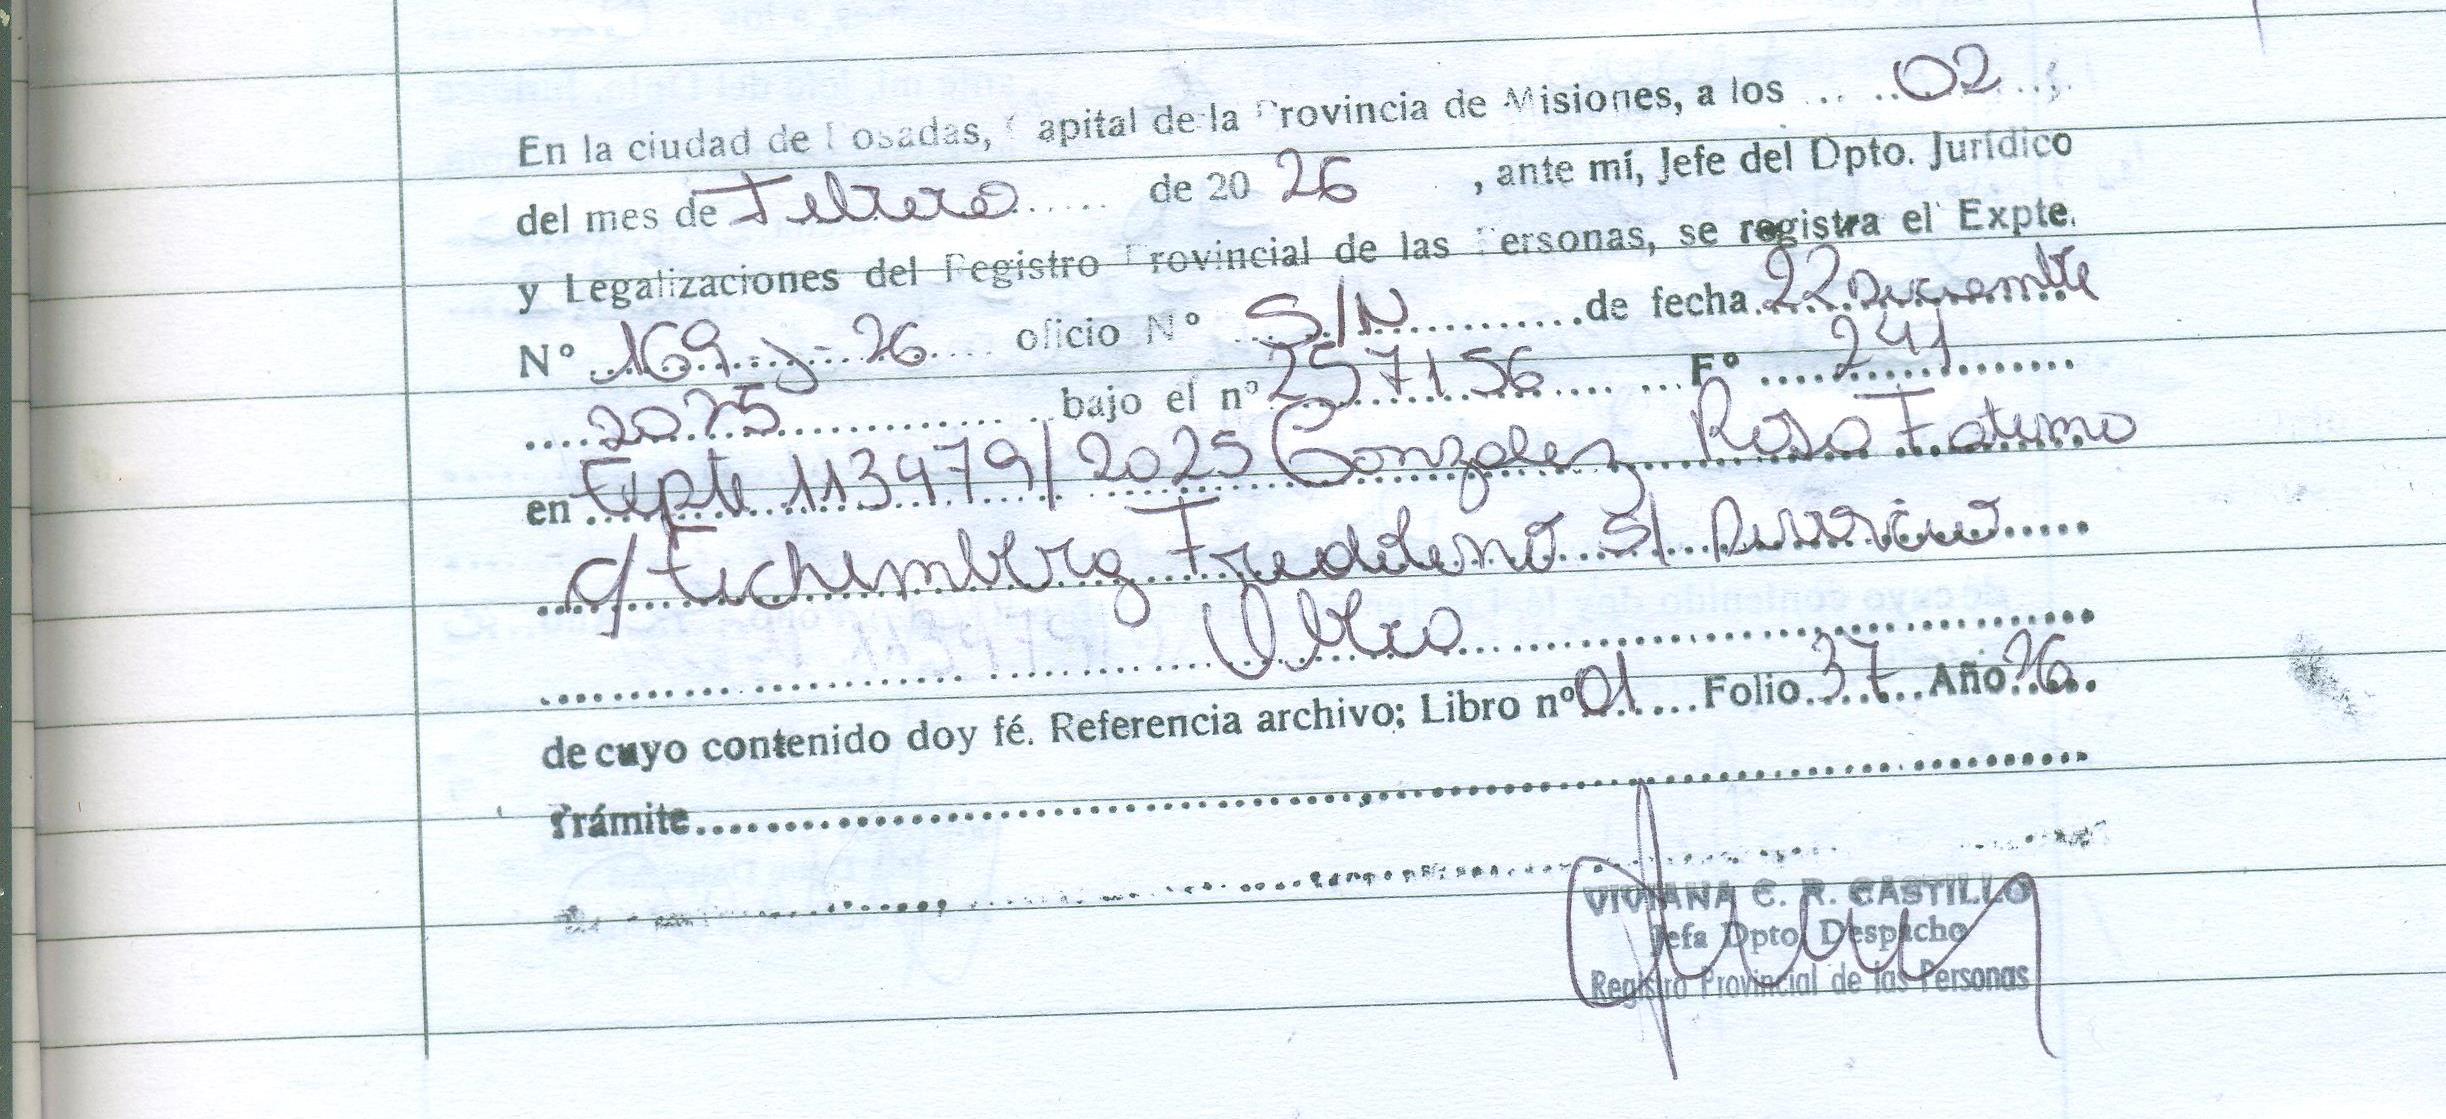 En la ciudad de Posadas, Capital de la Provincia de Misiones, a los 02
del mes de Febrero de 20 26, ante mí, Jefe del Dpto. Jurídico
y Legalizaciones del Registro Provincial de las Personas, se registra el Expte.
Nº 169-J-26 oficio Nº S/N de fecha 22 Diciembre
2025 bajo el nº 257156 Fº 241
en Expte 113479/2025 Gonzalez Rosa Fatima
c/ Eichemberg s/ Divorcio
de cuyo contenido doy fé. Referencia archivo; Libro nº 01 Folio 37 Año 26
Trámite
VIVIANA C. R. CASTILLO
Jefa Dpto. Despacho
Registro Provincial de las Personas